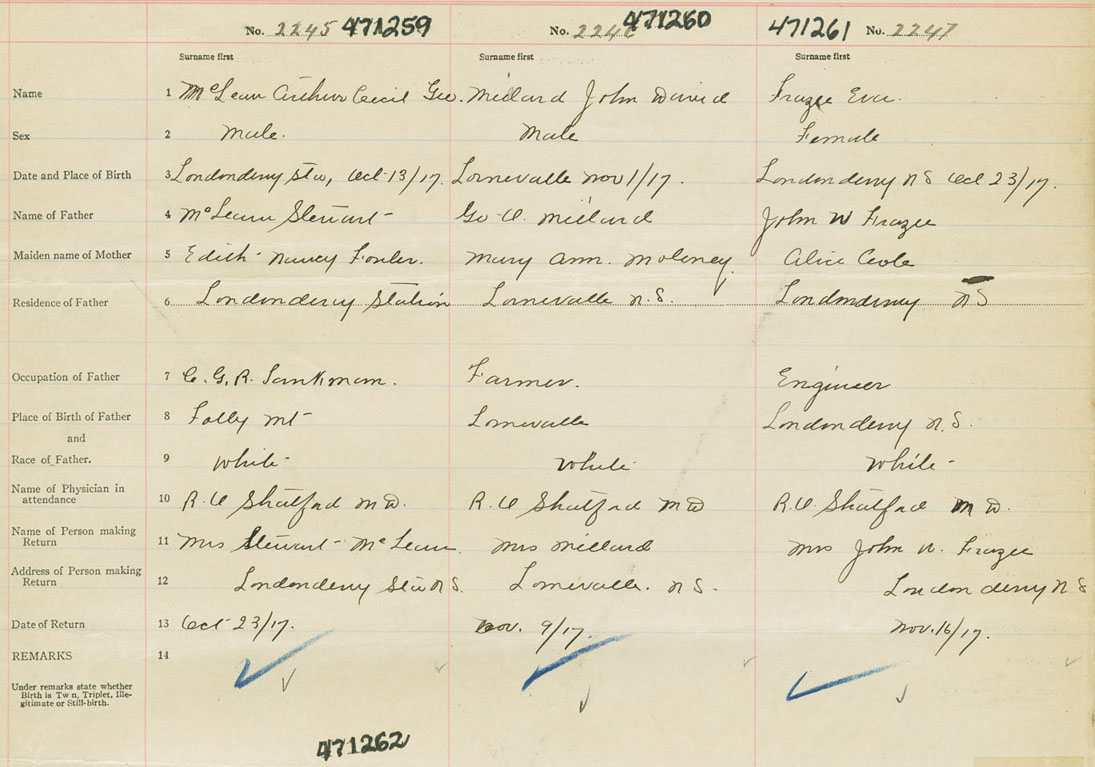 No. 2245 471259 No. 224 471260 471261 No. 2247
Surname first Surname first Surname first
Name 1 McLean Arthur Cecil Geo. Millard John David Frazee Eva.
Sex 2 Male. Male Female
Date and Place of Birth 3 Londonderry Sta, Oct 13/17. Lornevale Nov 1/17. Londonderry N S Oct 23/17.
Name of Father 4 McLean Stewart Geo Millard John W Frazee
Maiden name of Mother 5 Edith Nancy Fowler. Mary Ann. Moloney. Alice Cole
Residence of Father 6 Londonderry Station Lornevale N.S. Londonderry N S
Occupation of Father 7 C. G. R. Farmer. Engineer
Place of Birth of Father 8 Folly Mt Lornevale Londonderry N.S.
and
Race of Father. 9 White White White
Name of Physician in
attendance 10 R. Shatford M D. R. Shatford M D R. Shatford M D.
Name of Person making
Return 11 Mrs Stewart McLean Mrs Millard Mrs John W. Frazee
Address of Person making
Return 12 Londonderry Sta N S. Lornevale. N S. Londonderry N S
Date of Return 13 Oct 23/17. Nov. 9/17. Nov. 16/17.
REMARKS 14
Under remarks state whether
Birth is Tw n, Triplet, Ille-
gitimate or Still-birth.
471262